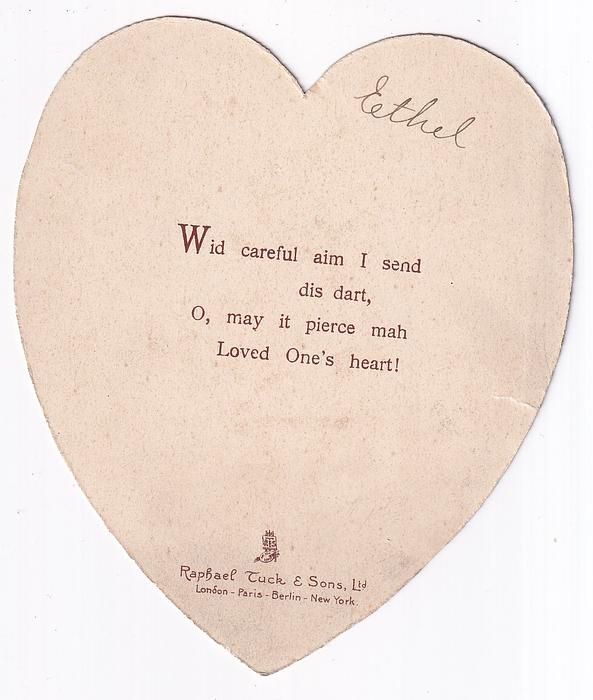 Ethel
Wid careful aim I send
dis dart,
O, may it pierce mah
Loved One's heart!
Raphael Tuck & Sons, Ltd
London - Paris - Berlin - New York.